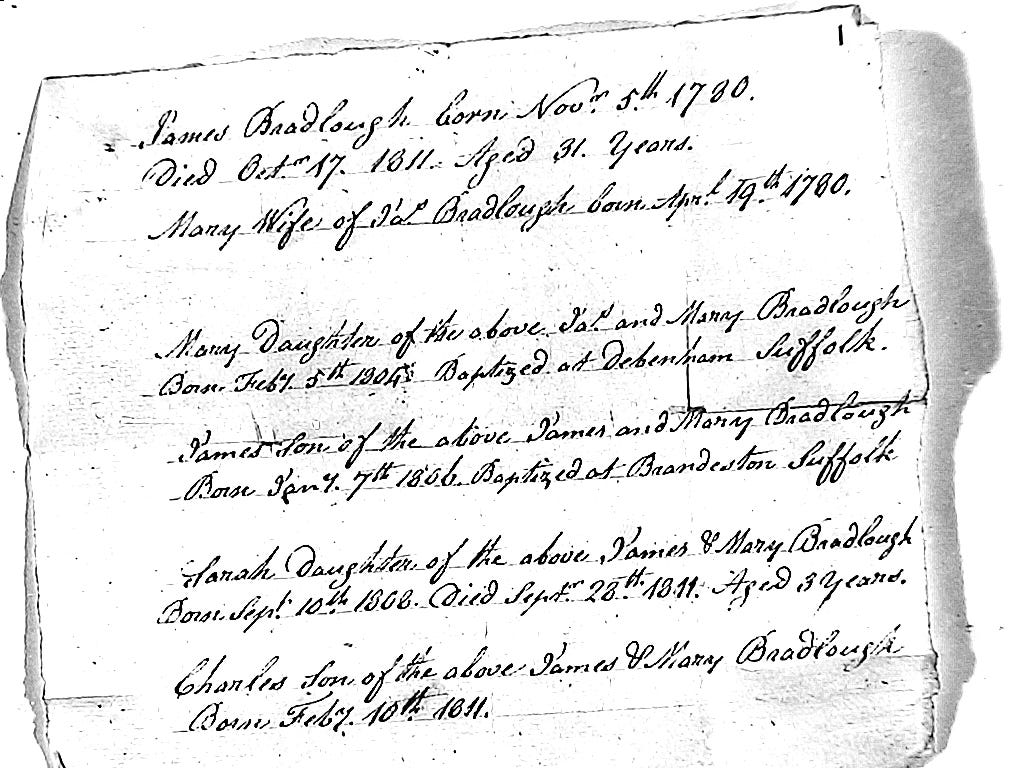 1
James Bradlough born Novr. 5th 1780.
Died Octr. 17. 1811. Aged 31. Years.
Mary Wife of Jas. Bradlough born Aprl. 19th 1780.
Mary Daughter of the above Jas. and Mary Bradlough
Born Feby. 5th Baptized at Debenham Suffolk.
James Son of the above James and Mary Bradlough
Born Jany. 7th 1806. Baptized at Brandeston Suffolk
Sarah Daughter of the above James & Mary Bradlough
Born Sept. 10th 1808. Died Septr. 28th 1811. Aged 3 Years.
Charles Son of the above James & Mary Bradlough
Born Feby. 10th 1811.